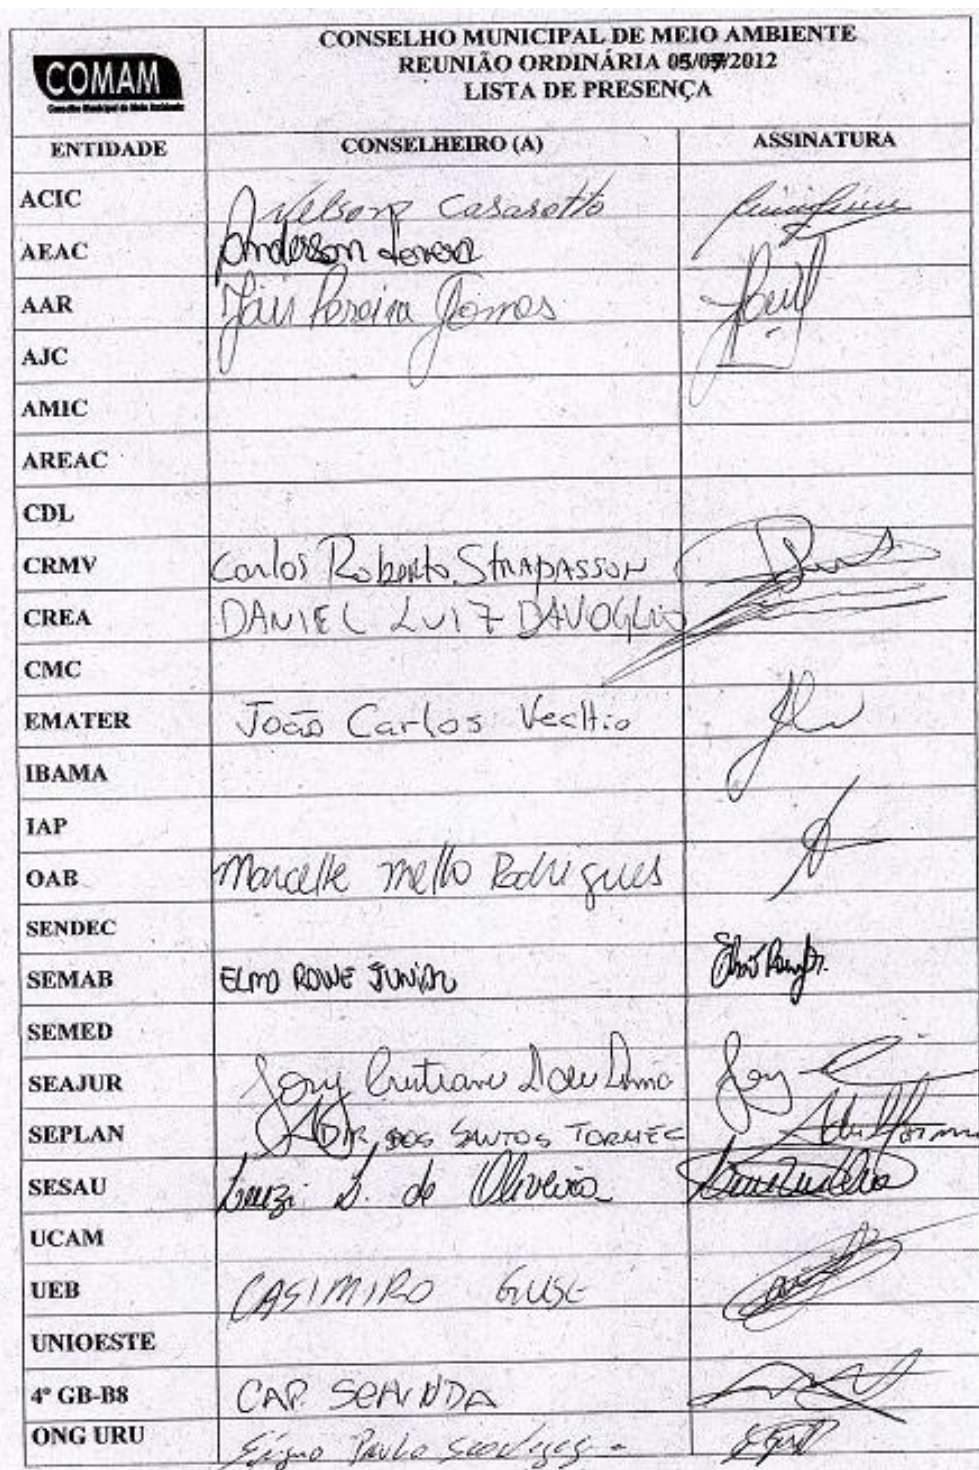 COMAM
Conselho Municipal de Meio Ambiente
CONSELHO MUNICIPAL DE MEIO AMBIENTE
REUNIÃO ORDINÁRIA 05/07/2012
LISTA DE PRESENÇA
ENTIDADE CONSELHEIRO (A) ASSINATURA
ACIC Nelson Casarotto
AEAC Anderson
AAR Jair Pereira Gomes
AJC
AMIC
AREAC
CDL
CRMV Carlos Roberto STRAPASSON
CREA DANIEL LUIZ DAVOGLIO
CMC
EMATER João Carlos Vecchio
IBAMA
IAP
OAB Marcelle Mello Rodrigues
SENDEC
SEMAB ELMO ROWE JUNIOR
SEMED
SEAJUR
SEPLAN ADIR DOS SANTOS TORMES
SESAU de Oliveira
UCAM
UEB CASIMIRO GUSE
UNIOESTE
4º GB-B8 CAP.
ONG URU Paulo